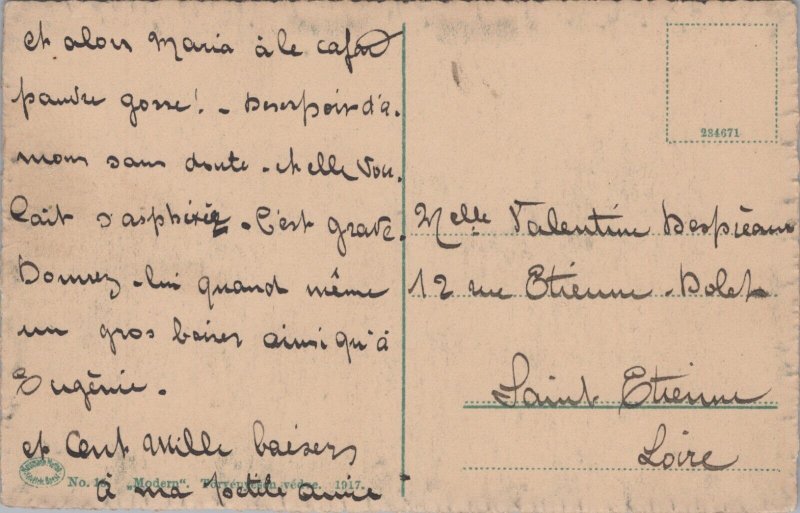 et alors Maria à le cafard
pauvre gosse! - Desespoir d'a-
mour sans doute - et elle vou-
lait s'asphixiée - C'est grave.
Donnez-lui quand même
un gros baiser ainsi qu'à
Eugènie.
et Cent Mille baisers
à ma petite amie
No. "Modern". Törvényesen védve. 1917.
234671
Melle Valentine Despréaux
12 rue Etienne-Dolet
Saint Etienne
Loire